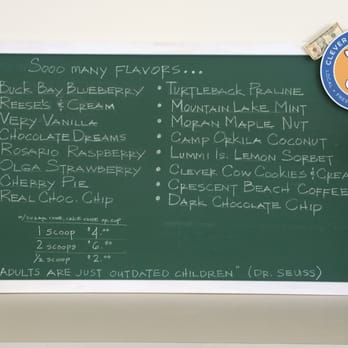 Sooo many flavors...
Buck Bay Blueberry
Reese's & Cream
Very Vanilla
Chocolate Dreams
Rosario Raspberry
Olga Strawberry
Cherry Pie
Real Choc. Chip
• Turtleback Praline
• Mountain Lake Mint
• Moran Maple Nut
• Camp Orkila Coconut
• Lummi Is. Lemon Sorbet
• Clever Cow Cookies & Crea
• Crescent Beach Coffee
• Dark Chocolate Chip
w/ sugar cone, cake cone or cup
1 scoop $4.00
2 scoops $6.00
1/2 scoop $2.00
Adults are just outdated children" (Dr. Seuss)
CLEVER